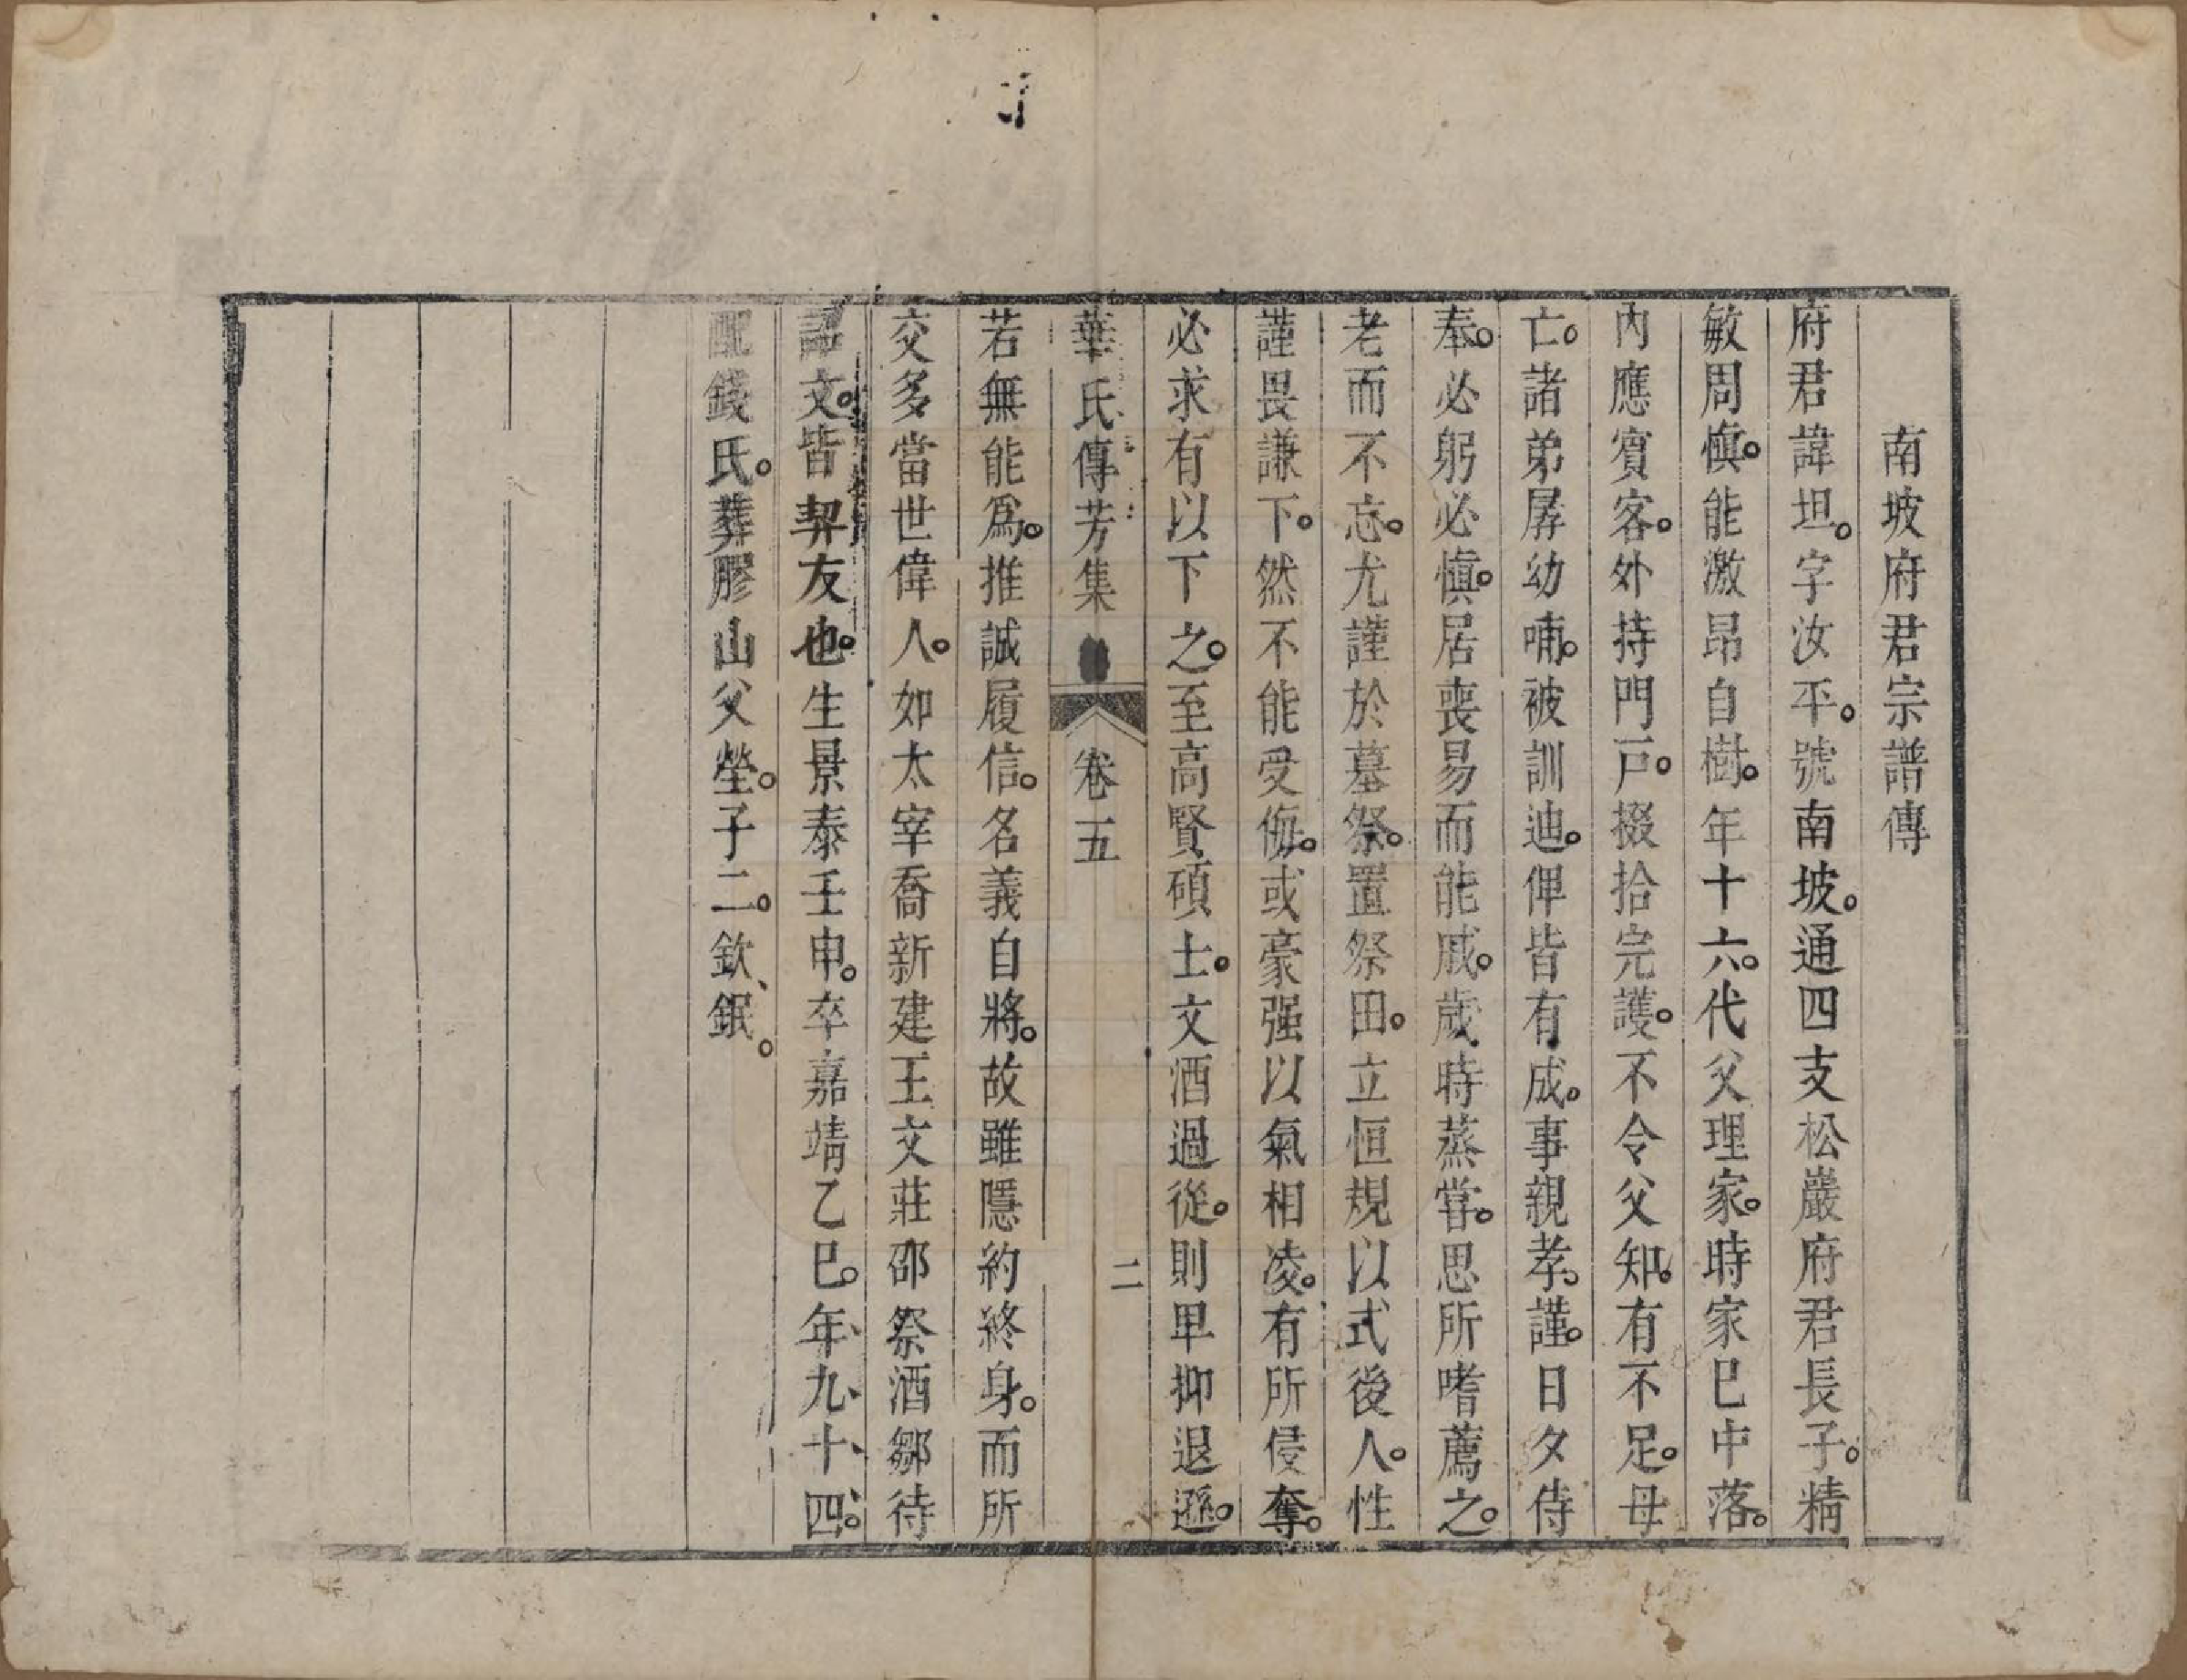 南坡府君宗譜傳
府君諱坦。字汝平。號南坡。通四支松巖府君長子。精
敏周慎。能激昂自樹。年十六。代父理家。時家巳中落。
內應賓客。外持門戸。掇拾完護。不令父知。有不足。母
亡。諸弟孱幼喃。被訓迪。俾皆有成。事親孝。謹。日夕侍
奉。必躬必慎。居喪易而能戚。歲時蒸嘗。思所嗜薦之。
老而不忘。尤謹於墓祭。置祭田。立恒規以式後人。性
謹畏謙下。然不能受侮。或豪强以氣相凌。有所侵奪。
必求有以下之。至高賢碩士。文酒過從。則卑抑退遜。
華氏傳芳集 卷五 二
若無能爲。推誠履信。名義自將。故雖隱約終身。而所
交多當世偉人。如太宰喬新建王文莊邵祭酒鄒待
詔文。皆契友也。生景泰壬申。卒嘉靖乙巳。年、九、十、四。
配錢氏。葬膠山父塋。子二。欽、鈱。